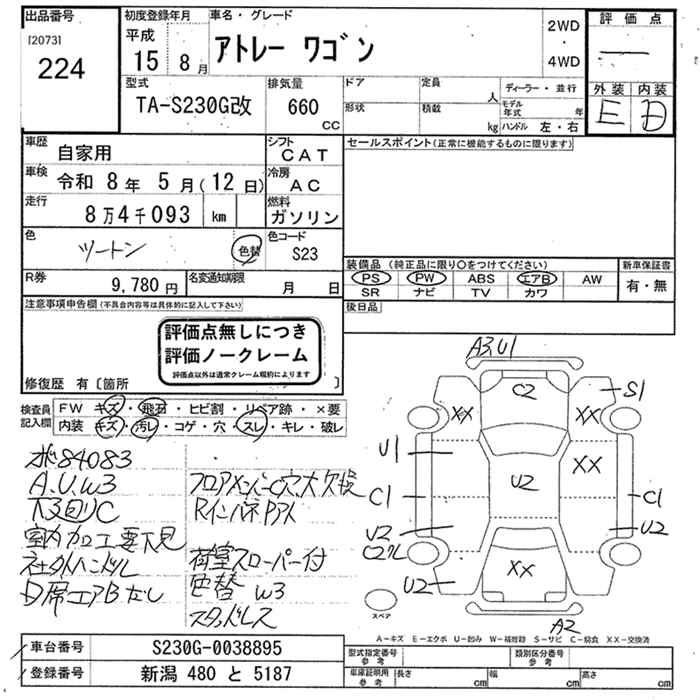 出品番号
[2073]
224
初度登録年月
平成
15 8 月
車名・グレード
アトレー ワゴン
2WD
・
4WD
評価点
―
外装 内装
E D
型式
TA-S230G改
排気量
660
CC
ドア
形状
定員
人
積載
kg
ディーラー・並行
モデル年式
年
ハンドル 左・右
車歴
自家用
シフト
CAT
セールスポイント(正常に機能するものに限ります)
車検
令和 8年 5月(12日)
冷房
AC
走行
8万4千093 km
燃料
ガソリン
色
ツートン
色替
色コード
S23
R券
9,780円
名変通知期限
月 日
装備品(純正品に限り○をつけてください)
新車保証書
PS PW ABS エアB AW
SR ナビ TV カワ
有・無
後日品
注意事項申告欄(不具合内容等は具体的に記入して下さい)
評価点無しにつき
評価ノークレーム
評価点以外は通常クレーム規約によります
修復歴 有〔箇所 〕
検査員
記入欄
FW キズ・飛石・ヒビ割・リペア跡・×要
内装 キズ・汚レ・コゲ・穴・スレ・キレ・破レ
84083
A.U.W3
下3回りC
室内加工要下見
社外ハンドル
フロアメンバーC穴大欠損
Rインパネ
荷室スロ-パー付
助席エアBなし
色替 W3
スタッドレス
A3 U1
C2
S1
XX
XX
U1
XX
U2
C1
C1
U2
U2
C2
XX
U2
A2
スペア
A-キズ E-エクボ U-凹み W-補修跡 S-サビ C-腐食 XX-交換済
車台番号
S230G-0038895
登録番号
新潟 480 と 5187
型式指定番号
参考
類別区分番号
参考
車庫証明用
参考
長さ
cm
幅
cm
高さ
cm